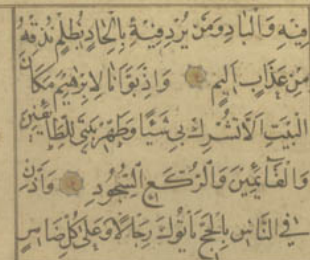 فِيهِ وَالْبَادِ وَمَنْ يُرِدْ فِيهِ بِإِلْحَادٍ بِظُلْمٍ نُذِقْهُ
مِنْ عَذَابٍ أَلِيمٍ وَإِذْ بَوَّأْنَا لِإِبْرٰهِيمَ مَكَانَ
الْبَيْتِ أَلَّا تُشْرِكْ بِي شَيْئًا وَطَهِّرْ بَيْتِيَ لِلطَّائِفِينَ
وَالْقَائِمِينَ وَالرُّكَّعِ السُّجُودِ وَأَذِّنْ
فِي النَّاسِ بِالْحَجِّ يَأْتُوكَ رِجَالًا وَعَلَى كُلِّ ضَامِرٍ